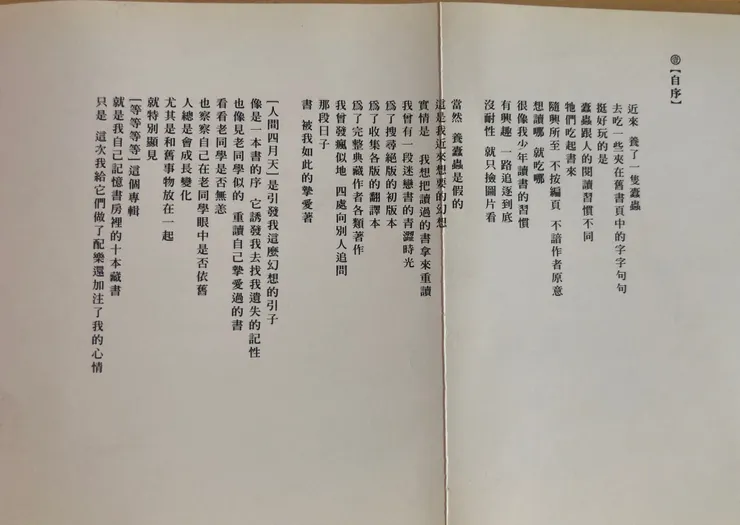 ㊀【自序】
近來 養了一隻蠹蟲
去吃一些夾在舊書頁中的字字句句
挺好玩的是
蠹蟲跟人的閱讀習慣不同
牠們吃起書來
隨興所至 不按編頁 不諳作者原意
想讀哪 就吃哪
很像我少年讀書的習慣
有興趣 一路追逐到底
沒耐性 就只撿圖片看
當然 養蠹蟲是假的
這是我近來想要的幻想
實情是 我想把讀過的書拿來重讀
我曾有一段迷戀書的青澀時光
為了搜尋絕版的初版本
為了收集各版的翻譯本
為了完整典藏作者各類著作
我曾發瘋似地 四處向別人追問
那段日子
書 被我如此的摯愛著
【人間四月天】是引發我這麼幻想的引子
像是一本書的序 它誘發我去找我遺失的記性
也像見老同學似的 重讀自己摯愛過的書
看看老同學是否無恙
也察察自己在老同學眼中是否依舊
人總是會成長變化
尤其是和舊事物放在一起
就特別顯見
【等等等等】這個專輯
就是我自己記憶書房裡的十本藏書
只是 這次我給它們做了配樂還加注了我的心情